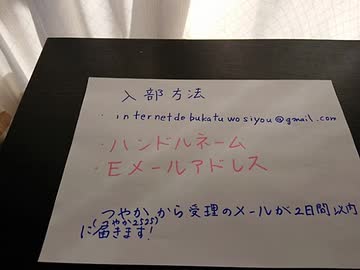 入部方法
・internetdebukatuwosiyou@gmail.com
・ハンドルネーム
・Eメールアドレス
つやか から受理のメールが2日間以内
(つやか2525)
に届きます!